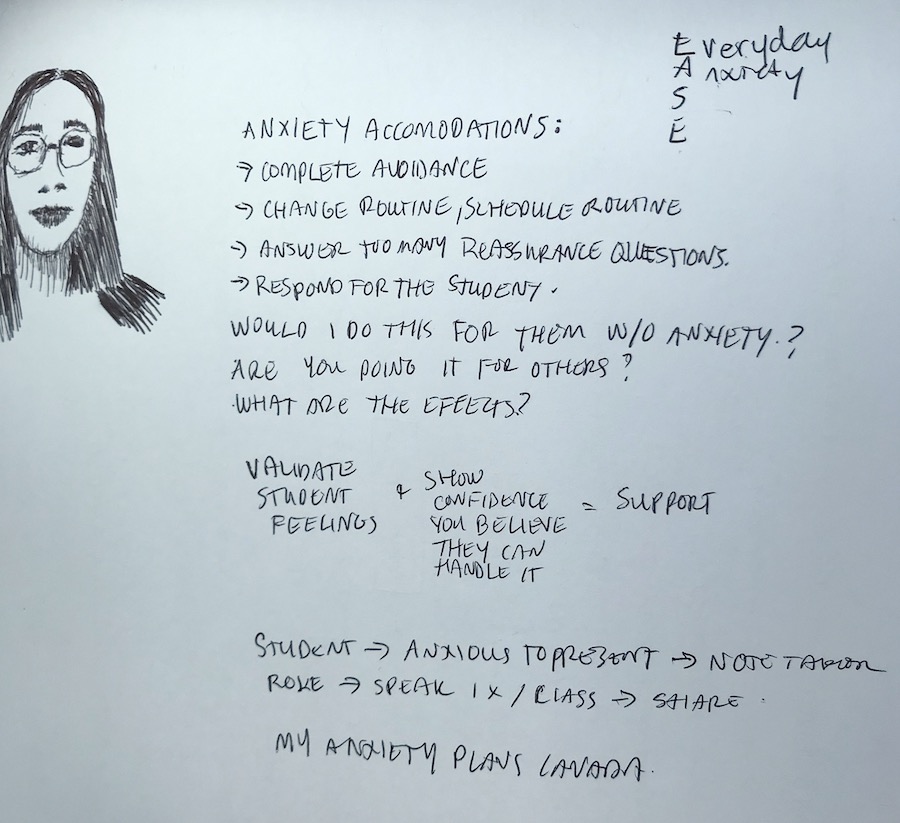 Everyday
Anxiety
S
E
ANXIETY ACCOMODATIONS:
→ COMPLETE AVOIDANCE
→ CHANGE ROUTINE, SCHEDULE ROUTINE
→ ANSWER TOO MANY REASSURANCE QUESTIONS.
→ RESPOND FOR THE STUDENT.
WOULD I DO THIS FOR THEM W/O ANXIETY.?
ARE YOU DOING IT FOR OTHERS?
WHAT ARE THE EFFECTS?
VALIDATE
STUDENT
FEELINGS
& SHOW
CONFIDENCE
YOU BELIEVE
THEY CAN
HANDLE IT
= SUPPORT
STUDENT → ANXIOUS TO PRESENT → NOTE TAKER
ROLE → SPEAK 1X / CLASS → SHARE.
MY ANXIETY PLANS CANADA.